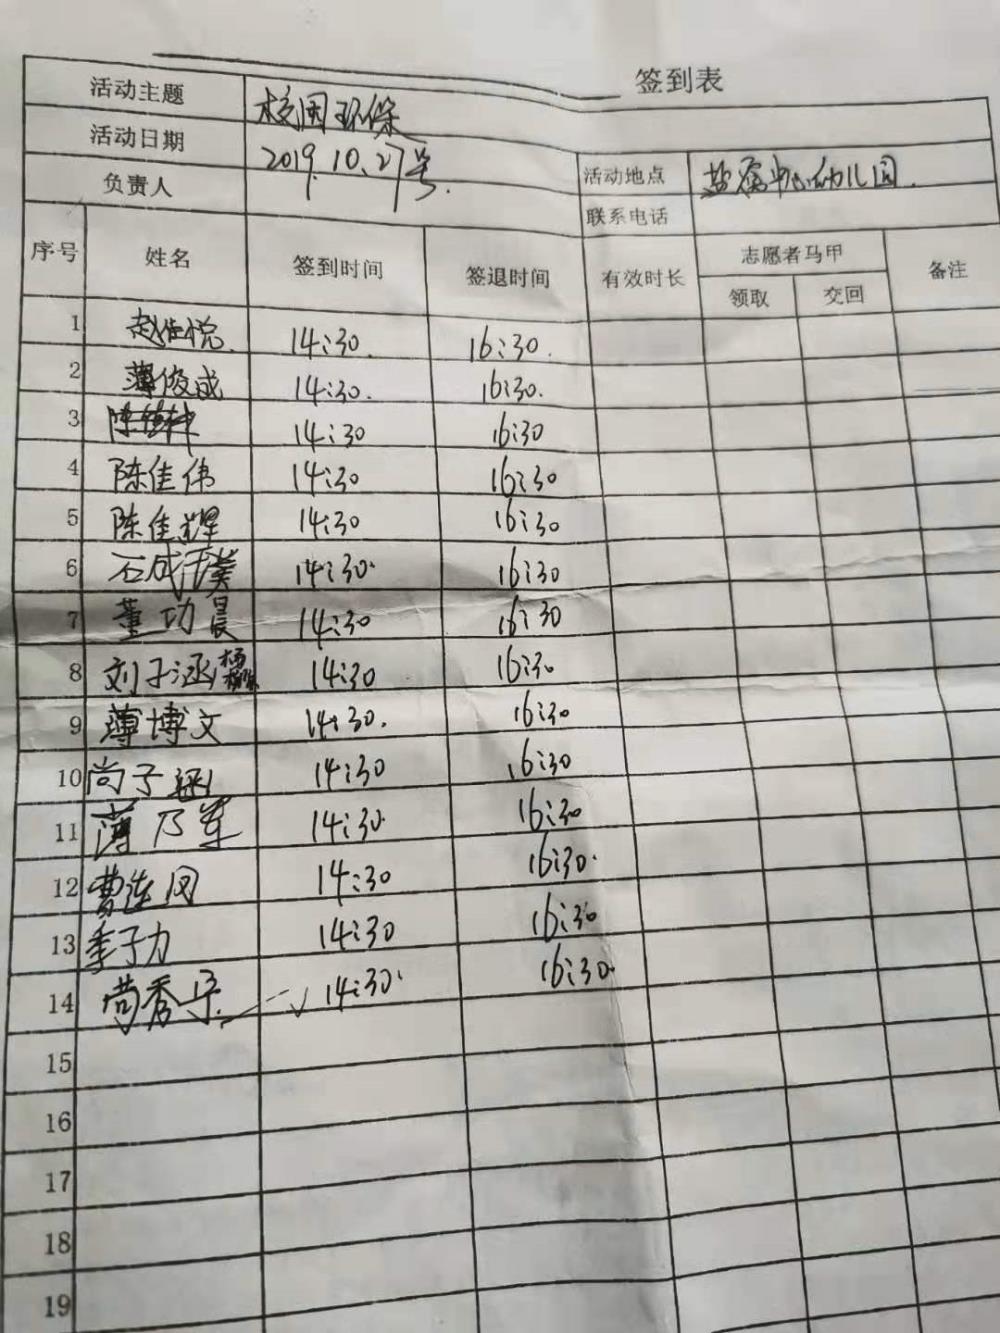 签到表
活动主题 校园环保
活动日期 2019.10.27号.
负责人 活动地点 中心幼儿园.
联系电话
序号 姓名 签到时间 签退时间 有效时长 志愿者马甲 备注
领取 交回
1 赵佳悦. 14:30. 16:30.
2 薄俊成 14:30. 16:30.
3 14:30 16:30
4 陈佳伟 14:30 16:30
5 陈佳辉 14:30 16:30
6 14:30. 16:30
7 董功晨 14:30 16:30
8 刘子涵 14:30 16:30
9 薄博文 14:30. 16:30
10 尚子涵 14:30 16:30
11 薄乃军 14:30 16:30
12 曹连凤 14:30 16:30.
13 季子力 14:30 16:30
14 14:30. 16:30.
15
16
17
18
19